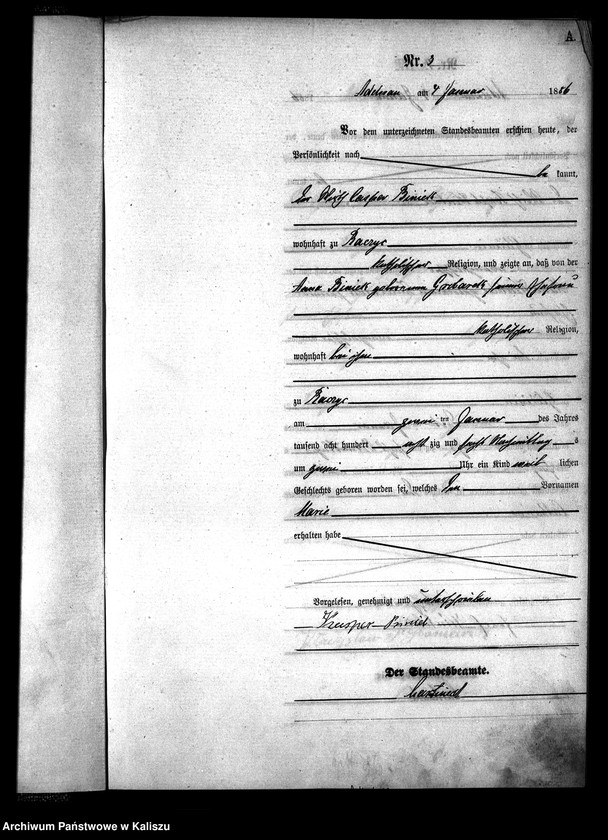 A.
Nr. 3
Adelnau am 4 Januar 1886
Vor dem unterzeichneten Standesbeamten erschien heute, der
Persönlichkeit nach
be kannt,
der Wirth Caspar Biniek
wohnhaft zu Raczyc
katholischer Religion, und zeigte an, daß von der
Anna Biniek geborenen seiner Ehefrau
katholischer Religion,
wohnhaft bei ihm
zu Raczyc
am zwei ten Januar des Jahres
tausend acht hundert acht zig und sechs Nachmittag s
um zwei Uhr ein Kind weib lichen
Geschlechts geboren worden sei, welches den Vornamen
Marie
erhalten habe
Vorgelesen, genehmigt und unterschrieben
Kasper Biniek
Der Standesbeamte.
Archiwum Państwowe w Kaliszu